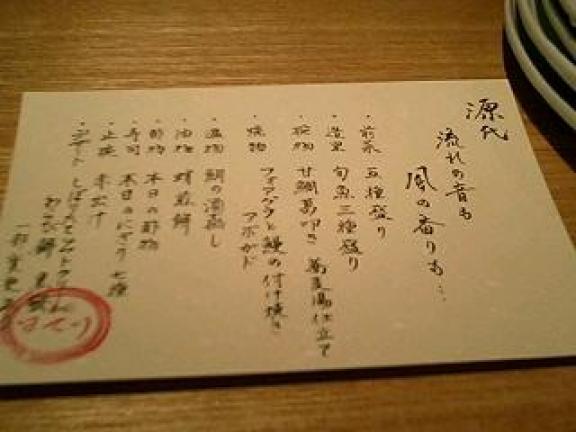 源氏
流れの音も
風の香りも…
・前菜 五種盛り
・造里 旬魚三種盛り
・椀物 甘鯛葛叩き 蕎麦湯仕立て
・焼物 フォアグラと鰻の付け焼き
アボガド
・温物 鯛の酒蒸し
・油物
・酢物 本日の酢物
・寿司 本日のにぎり 七種
・止椀 赤出汁
・デザート
わらび餅